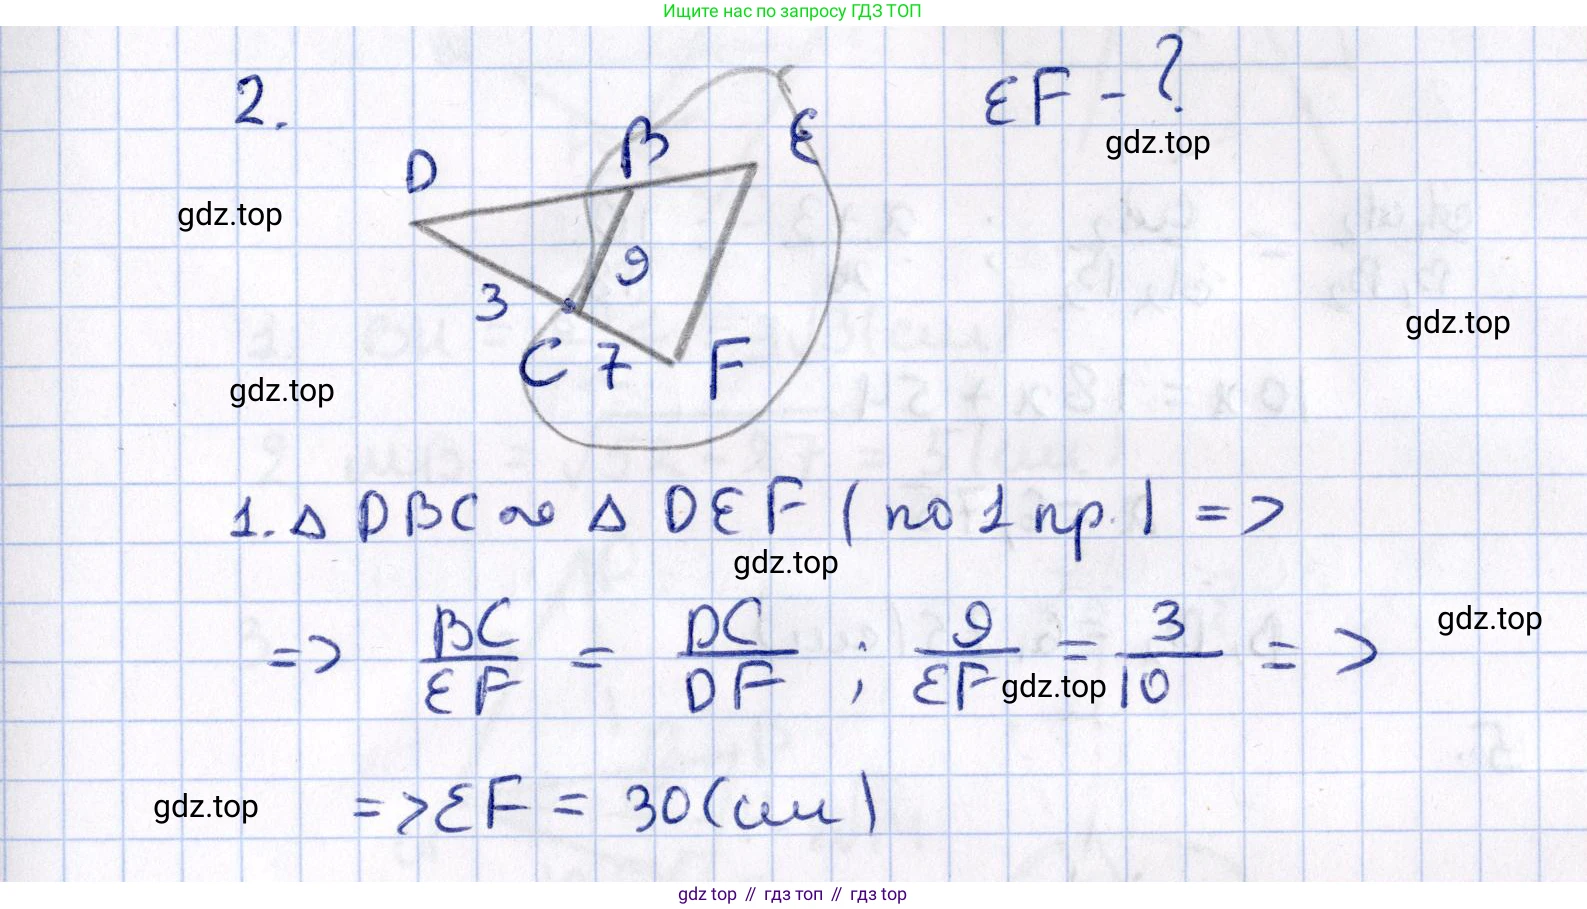 Ищите нас по запросу ГДЗ ТОП
2.
EF - ?
gdz.top
D
B
E
gdz.top
9
3
gdz.top
C 7 F
gdz.top
1. Δ DBC ∾ Δ DEF (по 1 пр.) =>
gdz.top
=> BC/EF = DC/DF ; 9/EF = 3/10 =>
gdz.top
gdz.top
=> EF = 30 (см)
gdz.top
gdz top // гдз топ // гдз top